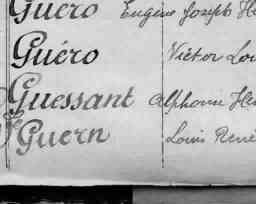 Guéro Eugène Joseph
Guéro Victor
Guessant Alphonse
Le Guern Louis René